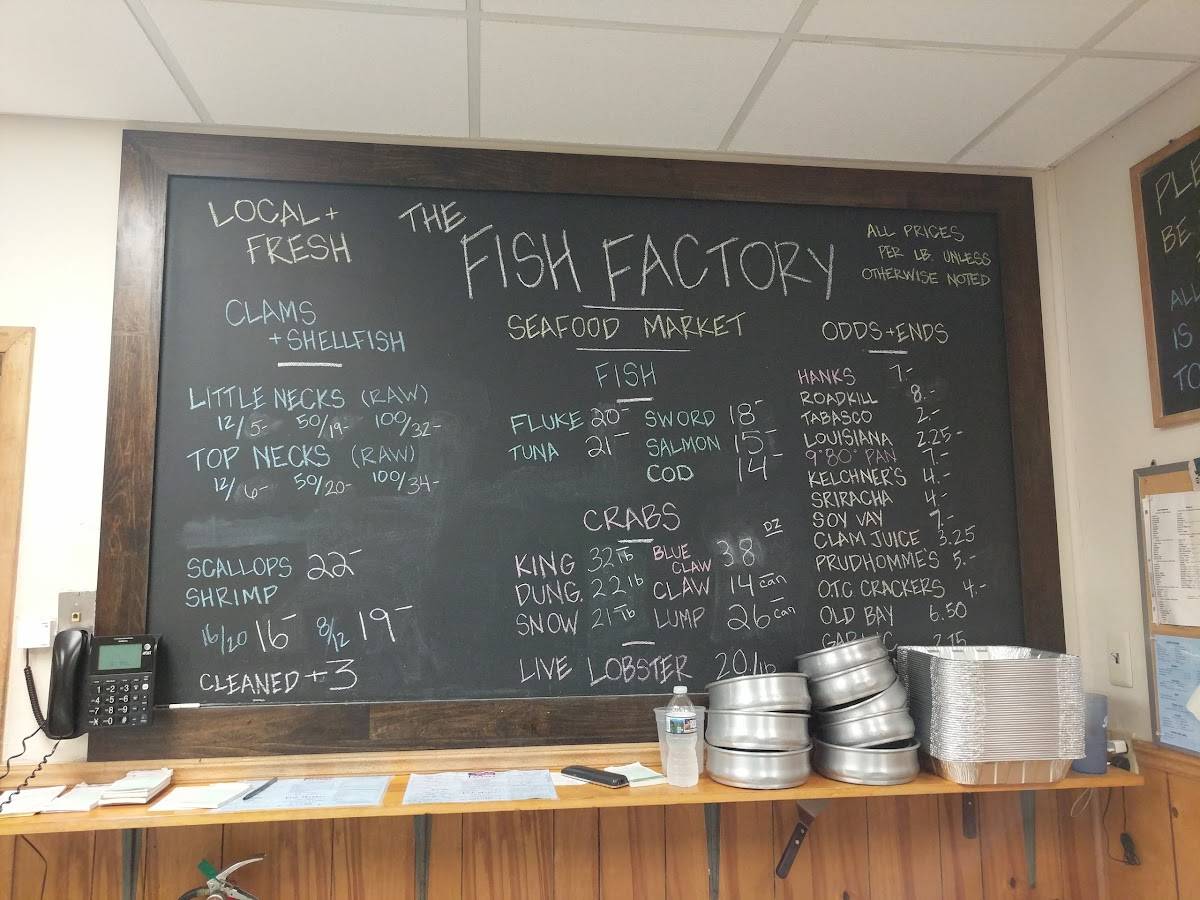 LOCAL +
FRESH
THE
FISH FACTORY
SEAFOOD MARKET
ALL PRICES
PER LB. UNLESS
OTHERWISE NOTED
CLAMS
+ SHELLFISH
LITTLE NECKS (RAW)
12/5- 50/19- 100/32-
TOP NECKS (RAW)
12/6- 50/20- 100/34-
SCALLOPS 22-
SHRIMP
16/20 16- 8/12 19-
CLEANED +3
FISH
FLUKE 20- SWORD 18-
TUNA 21- SALMON 15-
COD 14-
CRABS
DZ
KING 32 lb BLUE CLAW 38
DUNG. 22 lb CLAW 14 can
SNOW 21 lb LUMP 26 can
LIVE LOBSTER 20/lb
ODDS + ENDS
HANKS 7.-
ROADKILL 8.-
TABASCO 2.-
LOUISIANA 2.25-
PAN 7.-
KELCHNER'S 4.-
SRIRACHA 4.-
SOY VAY 7.-
CLAM JUICE 3.25
PRUDHOMME'S 5.-
O.T.C. CRACKERS 4.-
OLD BAY 6.50
GARLIC
PLE
BE
ALL
IS
TO